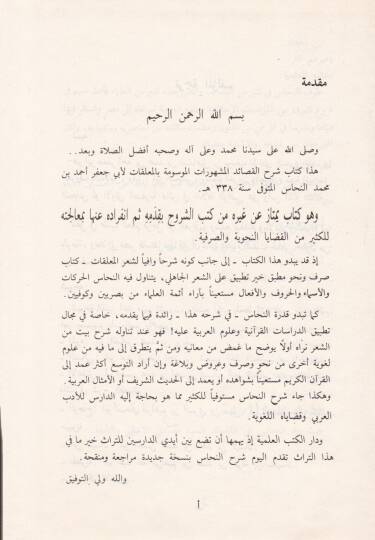 مقدمة
بسم الله الرحمن الرحيم
وصلى الله على سيدنا محمد وعلى آله وصحبه أفضل الصلاة وبعد . .
هذا كتاب شرح القصائد المشهورات الموسومة بالمعلقات لأبي جعفر أحمد بن
محمد النحاس المتوفى سنة ٣٣٨ هـ.
وهو كتاب يمتاز عن غيره من كتب الشروح بقدمه ثم انفراده عنها بمعالجته
للكثير من القضايا النحوية والصرفية.
إذ قد يبدو هذا الكتاب - إلى جانب كونه شرحاً وافياً لشعر المعلقات - كتاب
صرف ونحو مطبق خير تطبيق على الشعر الجاهلي، يتناول فيه النحاس الحركات
والأسماء والحروف والأفعال مستعيناً بآراء أئمة العلماء من بصريين وكوفيين.
كما تبدو قدرة النحاس - في شرحه هذا - رائدة فيما يقدمه، خاصة في مجال
تطبيق الدراسات القرآنية وعلوم العربية عليه! فهو عند تناوله شرح بيت من
الشعر نراه أولاً يوضح ما غمض من معانيه ومن ثمَّ يتطرق إلى ما فيه من علوم
لغوية أخرى من نحو وصرف وعروض وبلاغة وإن أراد التوسع أكثر عمد إلى
القرآن الكريم مستعيناً بشواهده أو يعمد إلى الحديث الشريف أو الأمثال العربية.
وهكذا جاء شرح النحاس مستوفياً للكثير مما هو بحاجة إليه الدارس للأدب
العربي وقضاياه اللغوية.
ودار الكتب العلمية إذ يهمها أن تضع بين أيدي الدارسين للتراث خير ما في
هذا التراث تقدم اليوم شرح النحاس بنسخة جديدة مراجعة ومنقحة.
والله ولي التوفيق
أ